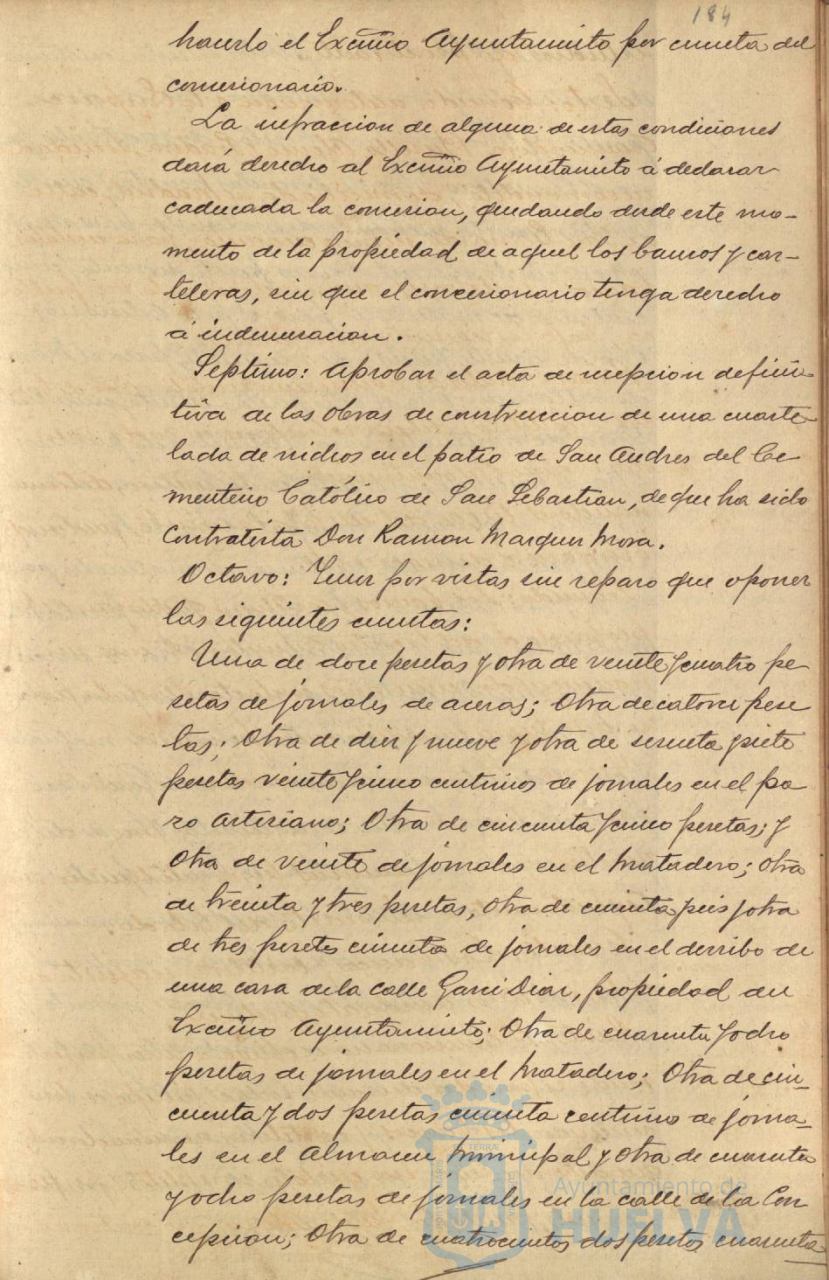 184
hacerlo el Excmo Ayuntamiento por cuenta del
concesionario.
La infraccion de alguna de estas condiciones
dará derecho al Excmo Ayuntamiento á declarar
caducada la concesion, quedando desde este mo-
mento de la propiedad de aquel los bancos y car-
teleras, sin que el concesionario tenga derecho
á indemnizacion.
Septimo: Aprobar el acta de recepcion defini-
tiva de las obras de construccion de una cuarte
lada de nichos en el patio de San Andres del Ce-
menterio Católico de San Sebastian, de que ha sido
Contratista Don Ramon Marquez Mora.
Octavo: Tener por vistas sin reparo que oponer
las siguientes cuentas:
Una de doce pesetas y otra de veinte y cuatro pe
setas de jornales de aceras; Otra de catorce pese
tas; Otra de diez y nueve y otra de sesenta y siete
pesetas veinte y cinco centimos de jornales en el po
zo Artesiano; Otra de cincuenta y cinco pesetas; y
Otra de veinte de jornales en el Matadero; Otra
de treinta y tres pesetas, Otra de y seis y otra
de tres pesetas de jornales en el derribo de
una casa de la calle Garci Diaz, propiedad del
Excmo Ayuntamiento; Otra de cuarenta y ocho
pesetas de jornales en el Matadero; Otra de cin-
cuenta y dos pesetas centimos de jorna-
les en el Almacen Municipal y Otra de cuarenta
y ocho pesetas de jornales en la calle de la Con
cepcion; Otra de cuatrocientos dos pesetas cuarenta
Ayuntamiento de
HUELVA